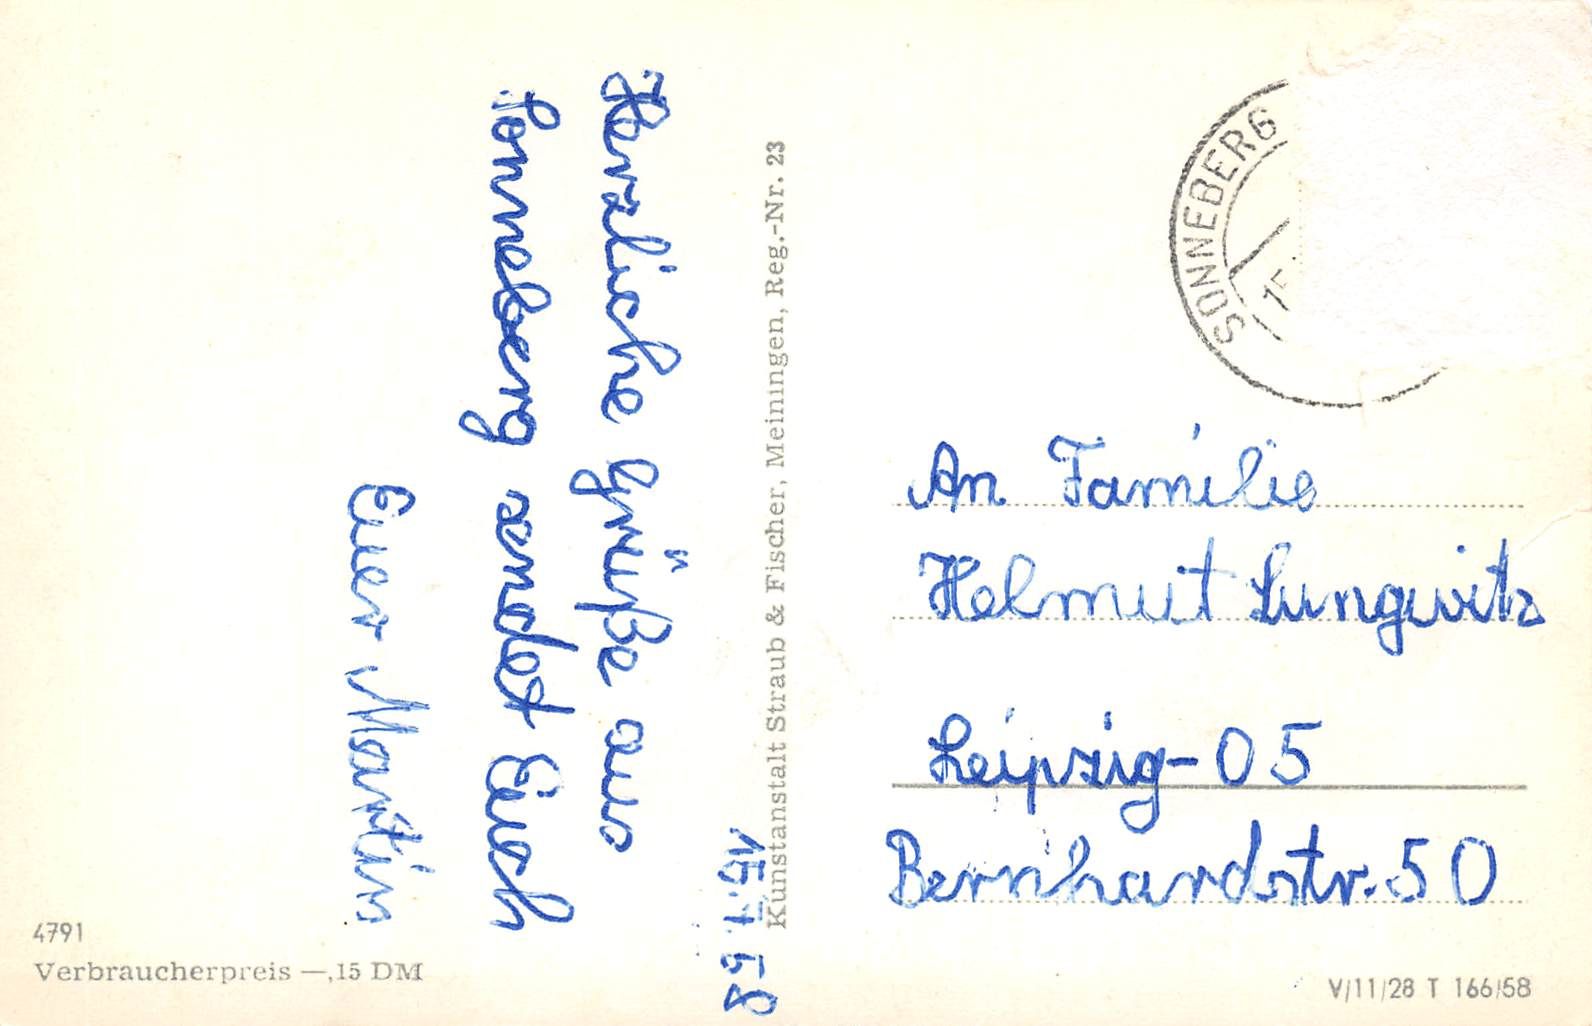 15.7.58
Herzliche Grüße aus
Sonneberg sendet Euch
Euer Martin
Kunstanstalt Straub & Fischer, Meiningen, Reg.-Nr. 23
SONNEBERG
15
An Familie
Helmut Lungwitz
Leipzig-05
Bernhardstr. 50
4791
Verbraucherpreis —,15 DM
V/11/28 T 166/58